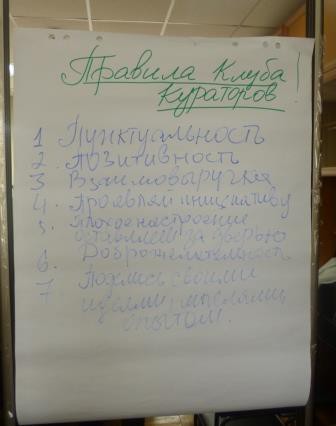 Правила Клуба
Кураторов!
1 Пунктуальность
2. Позитивность
3 Взаимовыручка
4. Проявляй инициативу
5. Плохое настроение
оставляем за дверью
6. Доброжелательность
7 Делись своими
идеями, мыслями,
опытом.